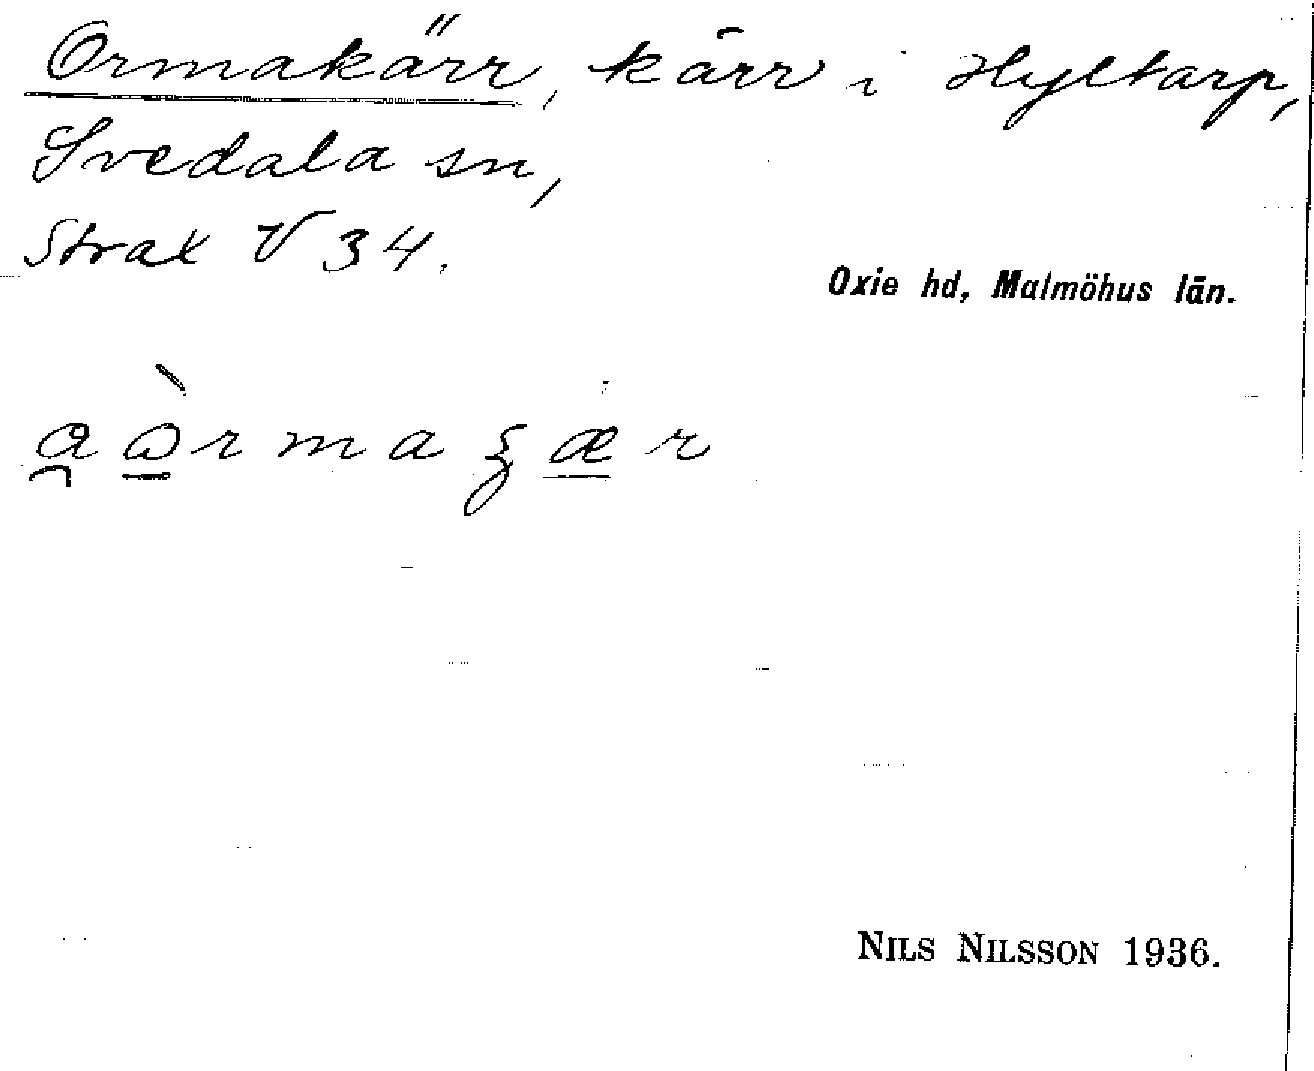 Ormakärr, kärr i Hyltarp,
Svedala sn,
Strax V 34.
Oxie hd, Malmöhus län.
NILS NILSSON 1936.